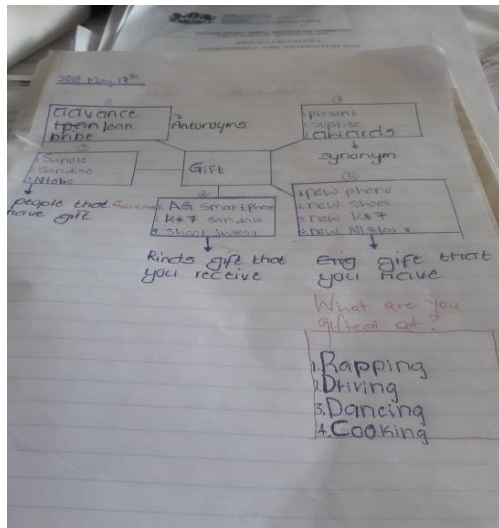 2018 May 17th
advance
loan
bribe
Antoroyms
1. present
2. suptise
3. awards
synonym
Gift
1. Sanele
2. Sandiso
3. Ntobe
people that
have gift
1. AG smartphone
2. K*7 sandals
Kinds gift that
you receive
1. new phone
2. new shoes
3. new K*7
gift that
you have
What are you
gifted at?
1. Rapping
2. Driving
3. Dancing
4. Cooking